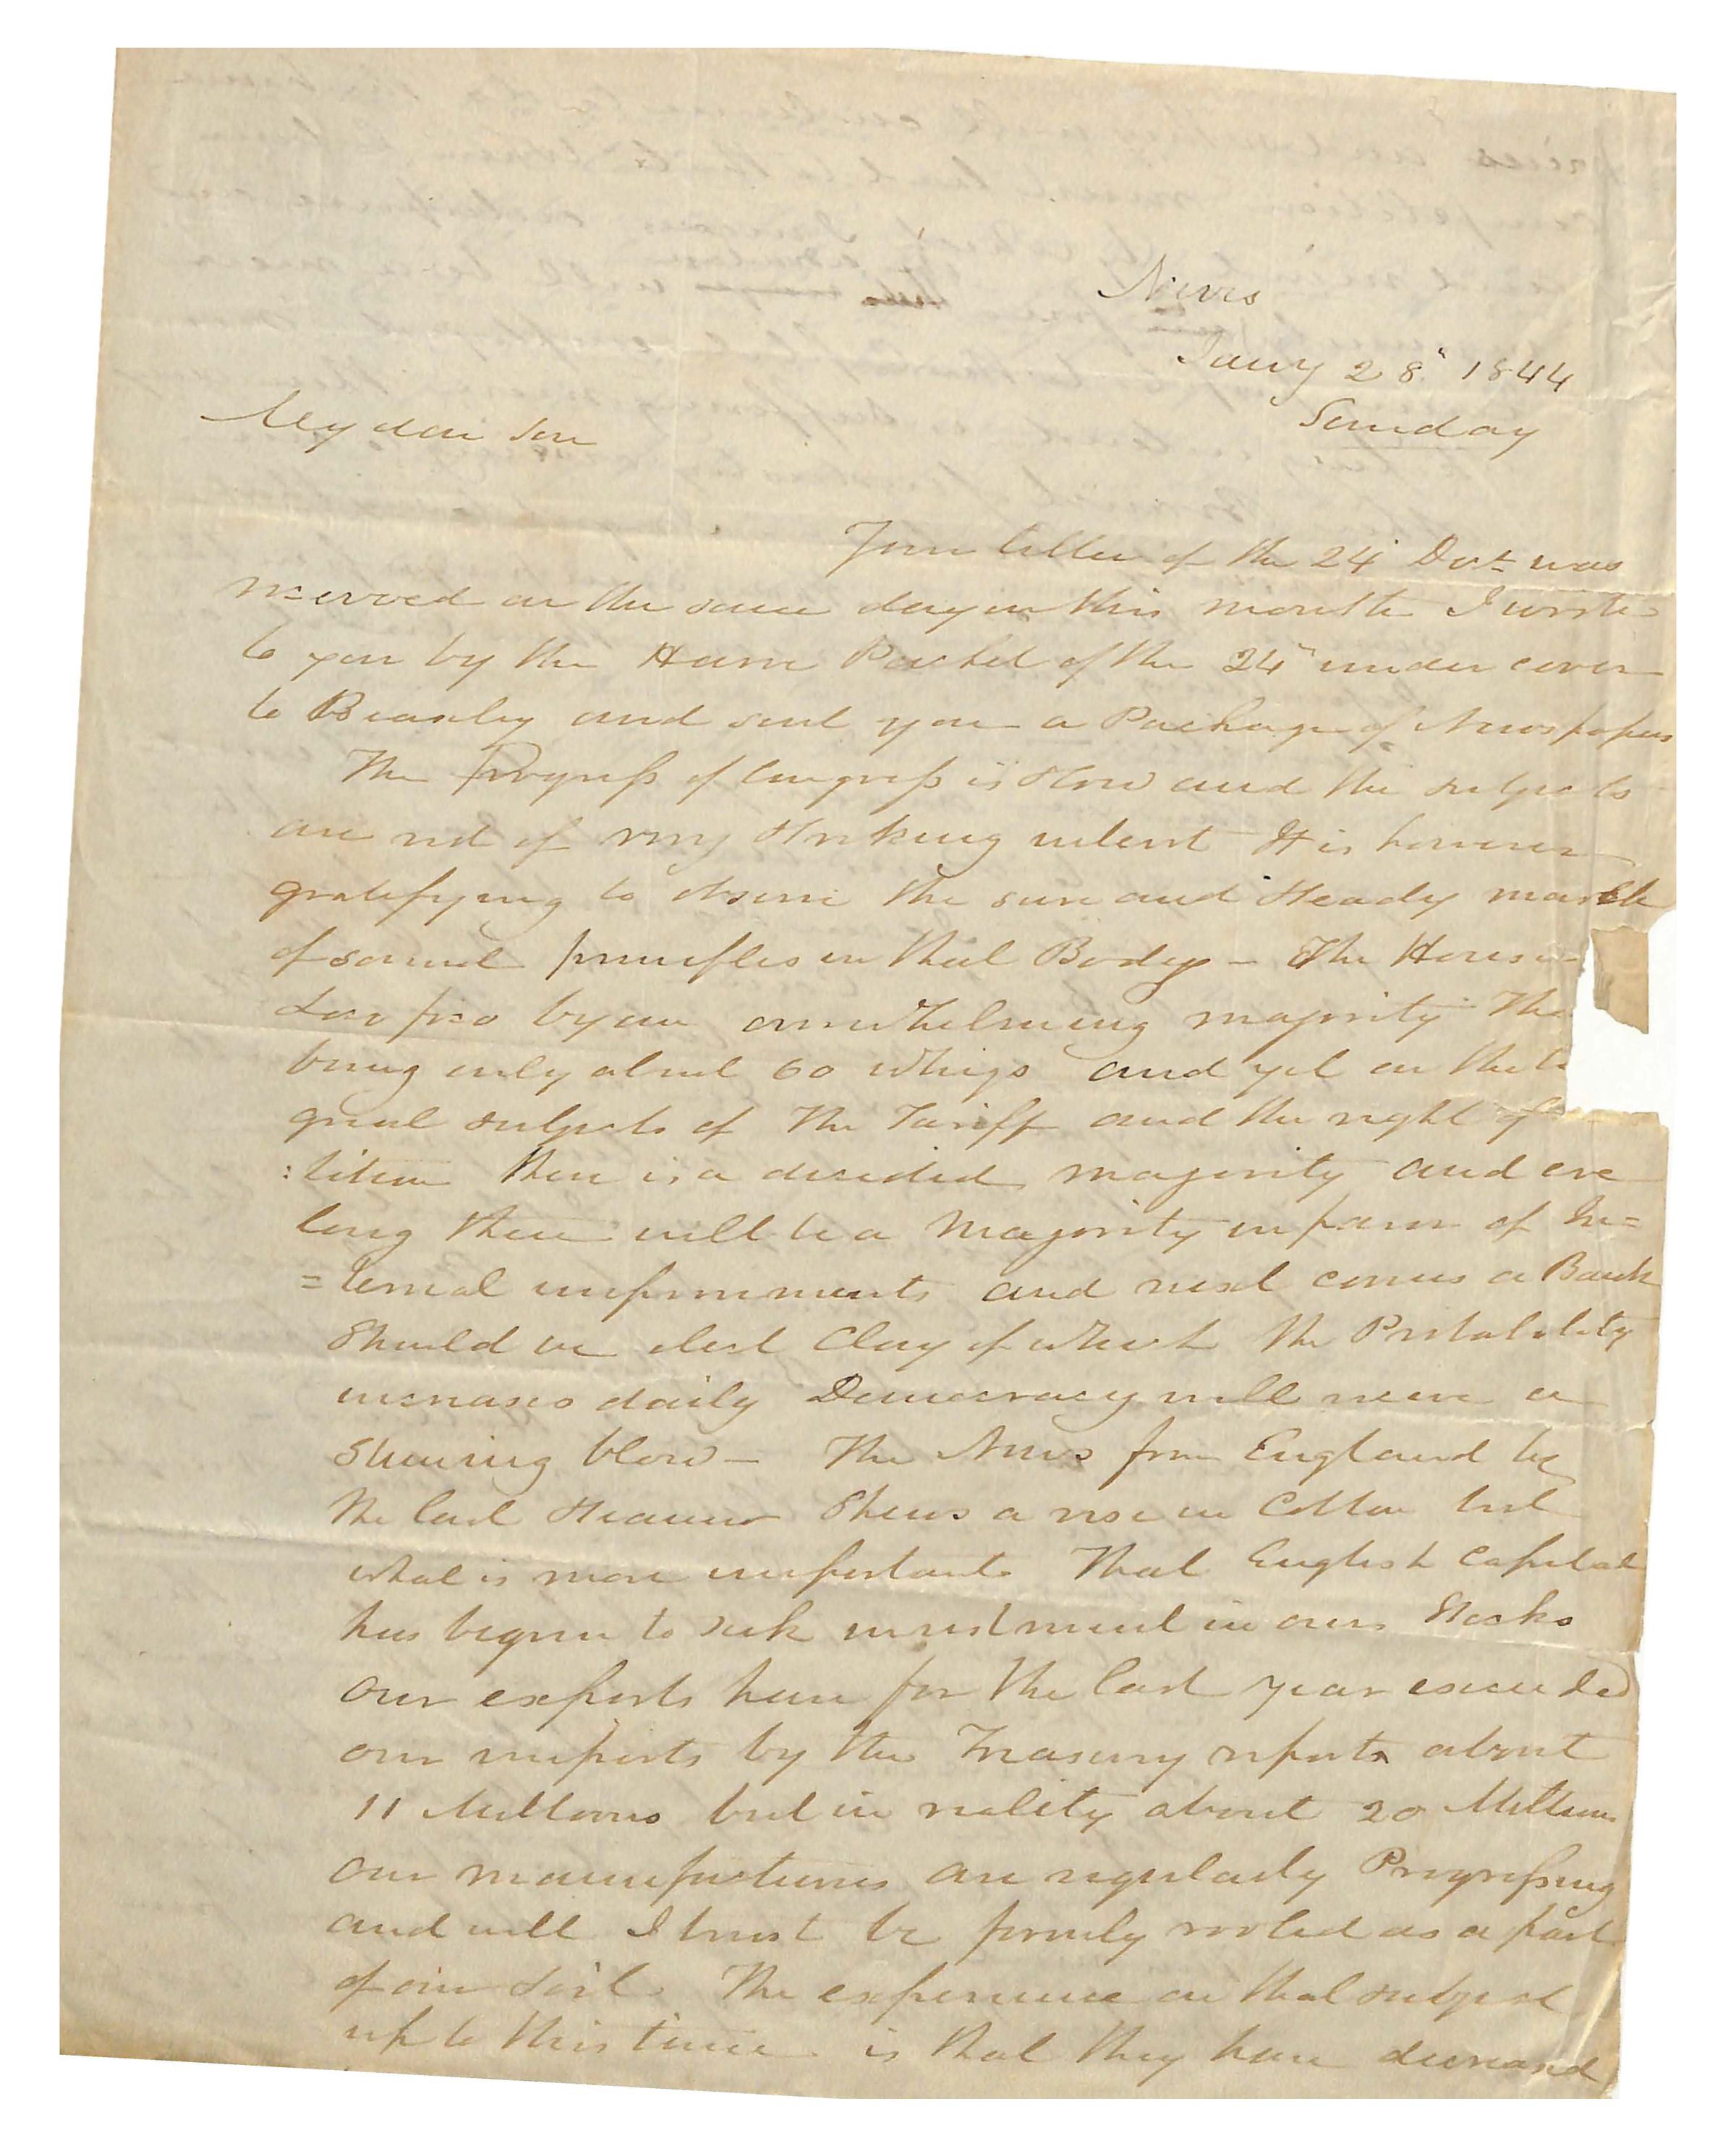 Nevis
Jany 28" 1844
Sunday
My dear Son
Your letter of the 24 Dec was
received on the same day in this month I wrote
to you by the Havre Packet of the 24" under cover
to Beasley and sent you a Package of Newspapers
The Progress of Congress is slow and the subjects
are not of very striking interest It is however
gratifying to observe the sure and steady march
of sound principles in that Body - The House is
Loco foco by an overwhelming majority The
being only about 60 Whigs and yet on the t
great subjects of The Tariff and the right of
:tition there is a decided majority and ere
long there will be a majority in favor of In=
=ternal improvements and next comes a Bank
Should we elect Clay of which the Probability
increases daily Democracy will receive a
Stunning blow - The News from England by
the last steamer Shews a rise in Cotton but
what is more important That English Capital
has begun to seek investment in our Stocks
our exports have for the last year exceeded
our imports by the Treasury reports about
11 Millions but in reality about 20 Millions
our manufactures are regularly Progressing
and will I trust be firmly rooted as a part
of our Soil. The experience on that subject
up to this time is that they have decreased